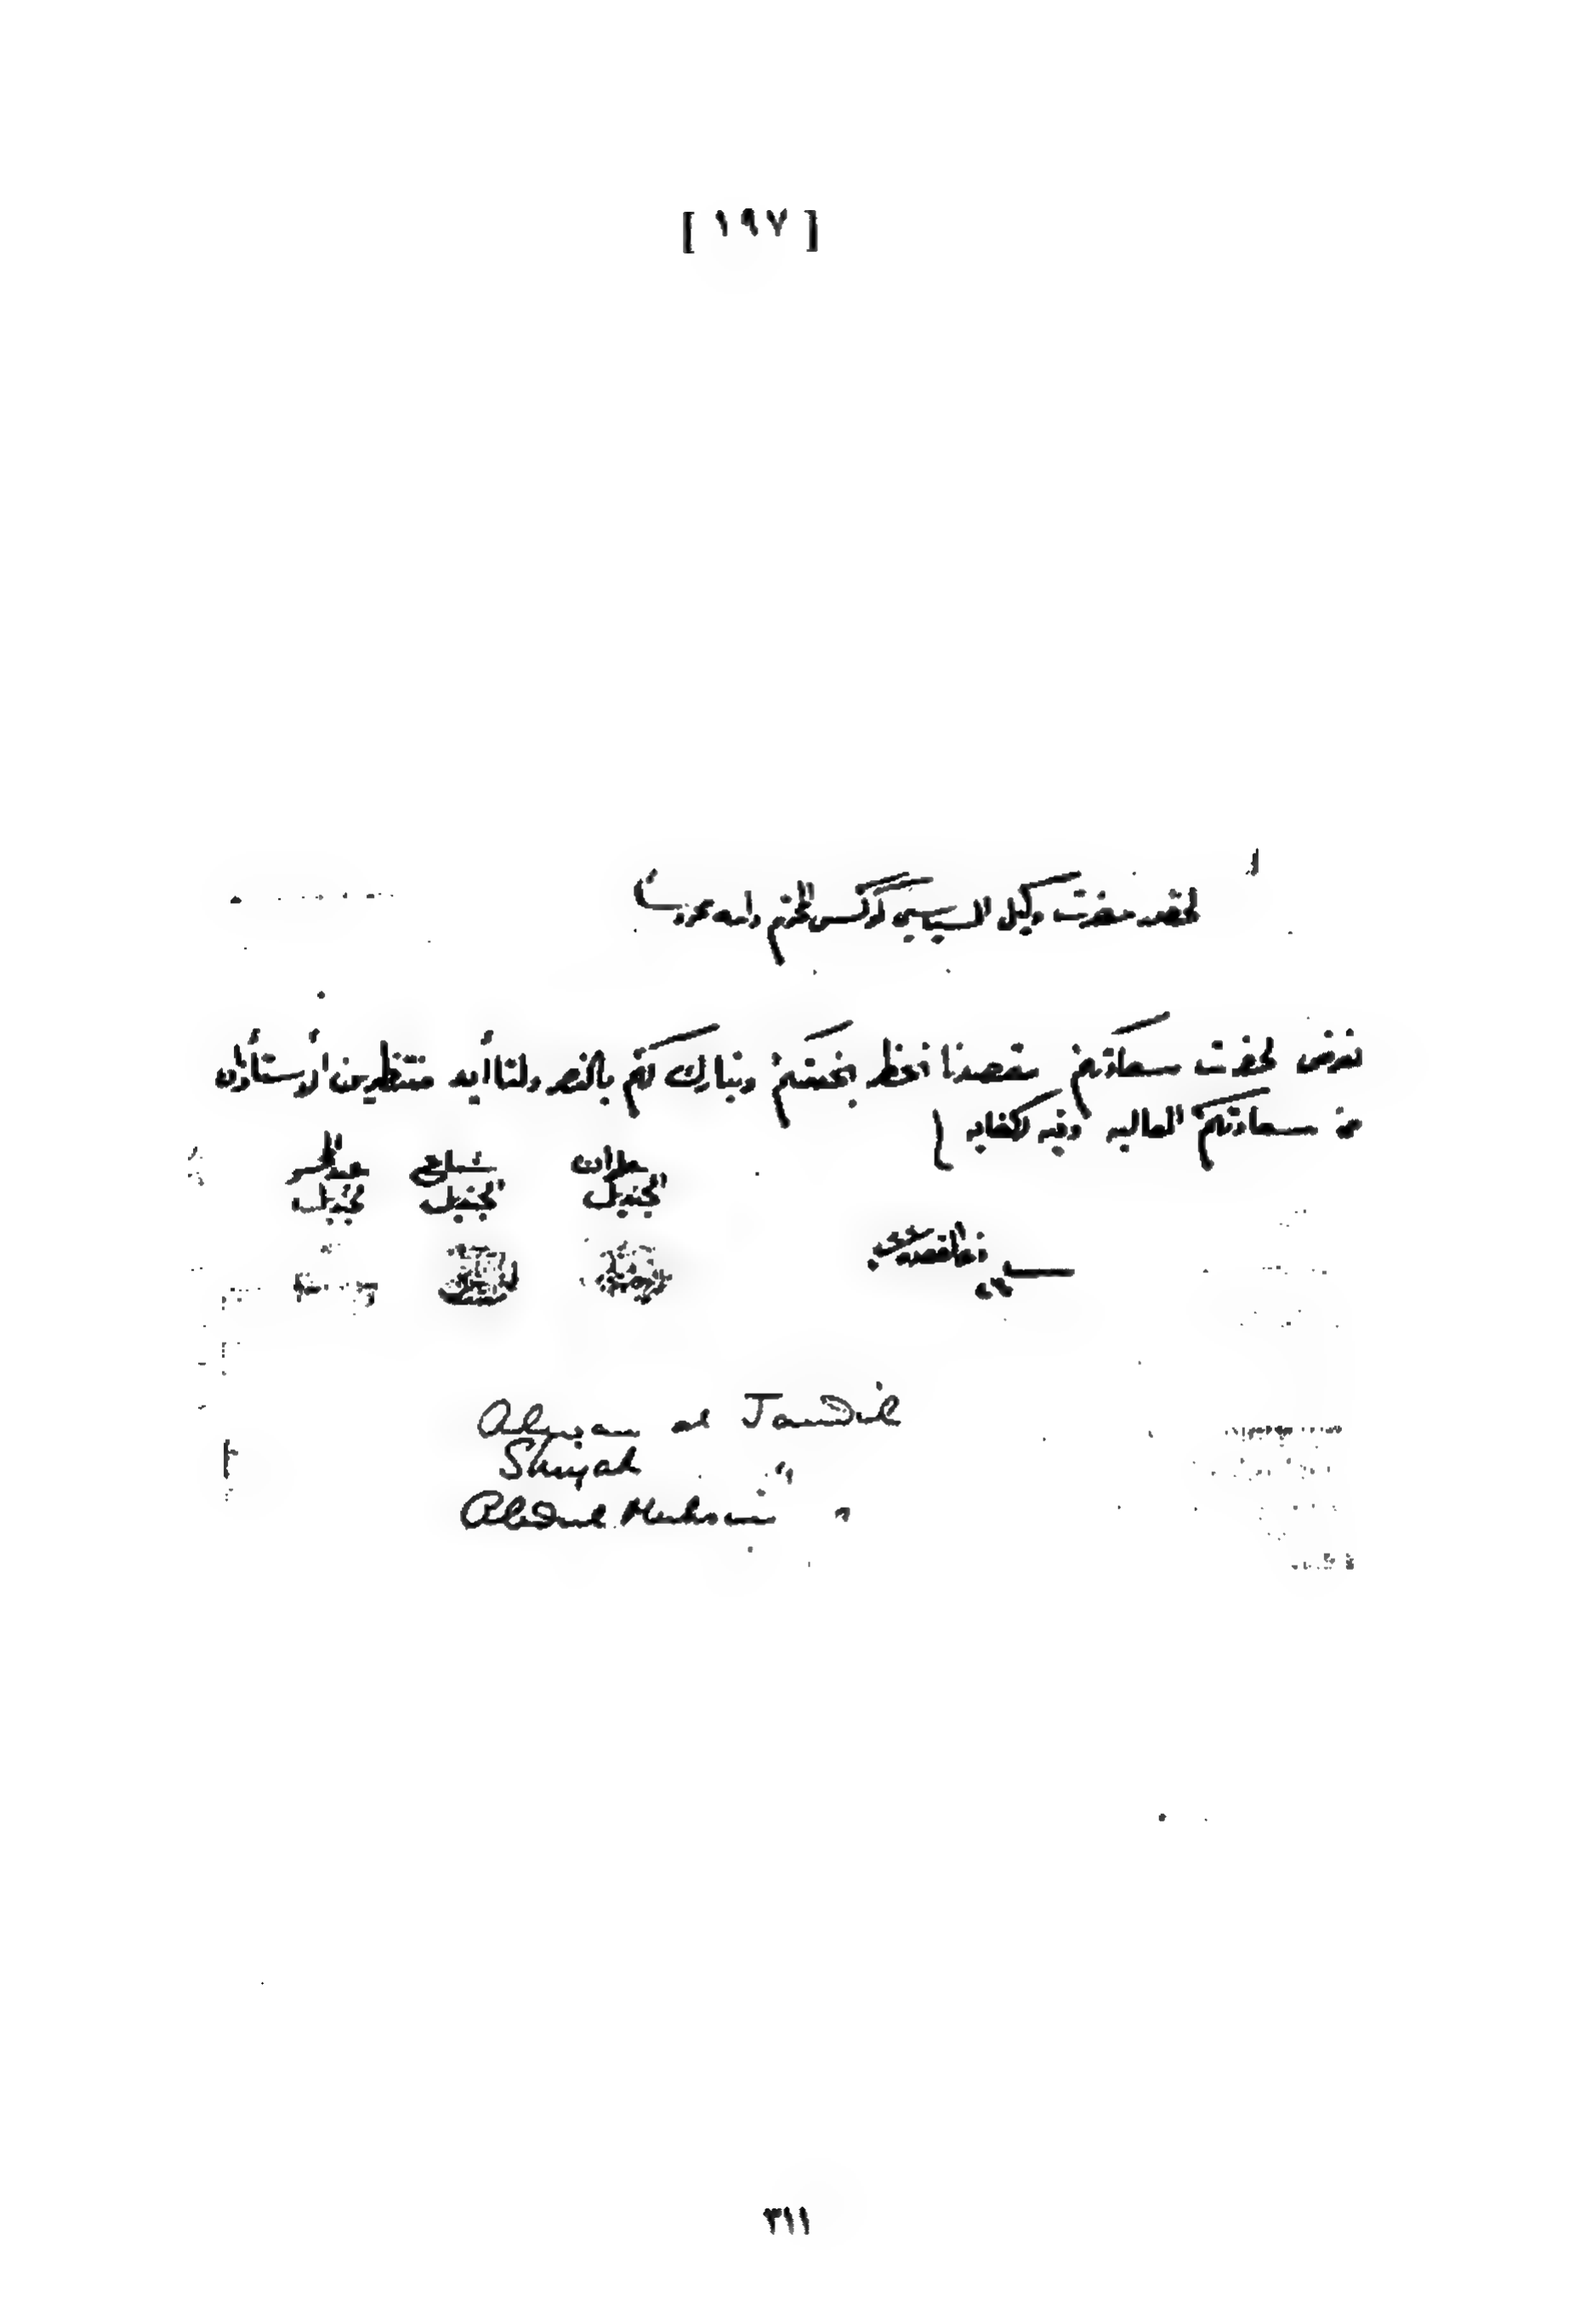 [ ١٩٧ ]
لحضرت وكيل السياسي كوكس المحترم دامه محروسا
نعرض لحضرت سعادتكم مقصدنا نحظر بخدمتكم ونبارك لكم بالنصر ولتأييد منتظرين الاستأذان
من سعادتكم العاليه وفيه الكفايه
علوان الجنديل
شياع الجنديل
عبد المحسن الجنديل
Alwan al Jandil
Shiyah "
Abdul Muhsin "
٣١١